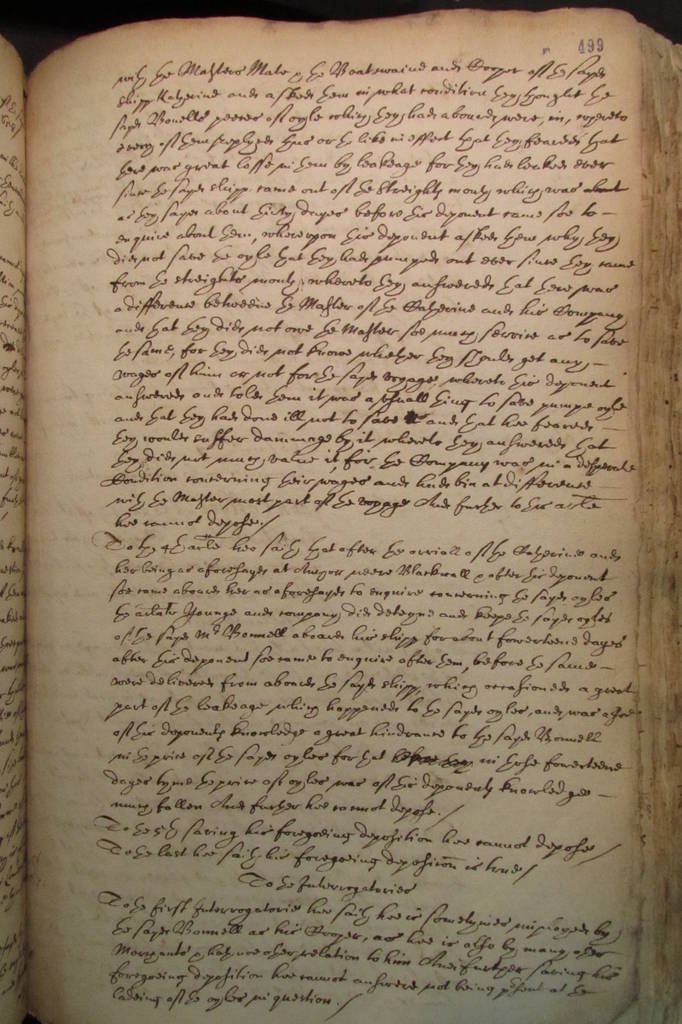 499
with the Masters Mate & the Boatswaine and Cooper of the sayd
shipp Katherine and asked them in what condition they thought the
sayd Bonells peeces of oyle which they had aboard were, in, whereto
every of them replyed thus or the like in effect that they feared that
there was great losse in them by leakage for they had leaked ever
since the sayd shipp came out of the streights mouth which was about
as they sayd about thirty dayes before this deponent came soe to
enquire about them, whereupon this deponent asked them why they
did not save the oyle that they had pumped out ever since they came
from the streights mouth, whereto they answered that there was
a difference betweene the Master of the Catherine and his Company
and that they did not owe the Master soe much service as to save
the same, for they did not knowe whether they should get any
wages of him or not for the sayd voyage, whereto this deponent
answered and told them it was a small thing to save pumpe oyle
and that they had done ill not to save it and that hee feared
they would suffer dammage by it whereto they answered that
they did not much value it, for the Company was in a desperate
Condition concerning their wages and had bin at difference
with the Master most part of the voyage And further to this article
hee cannot depose./
To the 4th article hee saith that after the arrivall of the Catherine and
her being as aforesayd at Anchor neere Blackwall & after this deponent
soe came aboard her as aforesayd to enquire concerning the sayd oyles
the arlate Younge and company did deteyne and keepe the sayd oyles
of the sayd Mr Bonnell aboard his shipp for about fowerteene dayes
after this deponent soe came to enquire after them, before the same
were delivered from aboard the sayd shipp, which occasioned a great
part of the leakage which happened to the sayd oyles, and was alsoe
of this deponents knowledge a great hindrance to the sayd Bonnell
in the price of the sayd oyles for that in those fowerteene
dayes tyme the price of oyles was of this deponents knowledge
much fallen And further hee cannot depose./
To the 5th saving his foregoeing deposition hee cannot depose/
To the last hee saith his foregoeing deposition is true/
To the Interrogatories
To the first Interrogatorie hee saith hee is sometymes imployed by
the sayd Bonnell as his Cooper, as hee is also by many other
Merchants & hath noe other relation to him And further saving his
foregoeing deposition hee cannot answere not being present at the
ladeing of the oyles in question./